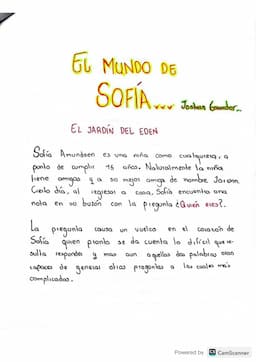 EL MUNDO DE
SOFÍA...
EL JARDÍN DEL EDEN
Sofía Amundsen es una niña como cualquiera, a
punto de cumplir 15 años. Naturalmente la niña
tiene amigos y a su mejor amiga de nombre
Cierto día, al regresar a casa, Sofía encuentra una
nota en su buzón con la pregunta ¿Quién eres?.
La pregunta causa un vuelco en el corazón de
Sofía quien pronto se da cuenta lo difícil que re-
sulta responder y mas aun aquellas dos palabras son
capaces de generar otras preguntas a las cuales más
complicadas.
Powered by CS CamScanner